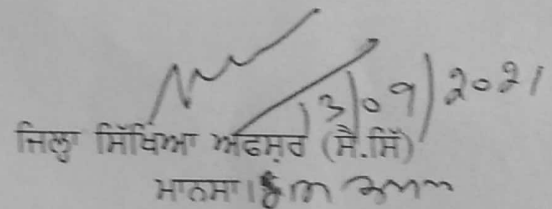 13/09/2021
ਜਿਲ੍ਹਾ ਸਿੱਖਿਆ ਅਫਸਰ (ਸੈ.ਸਿੱ)
ਮਾਨਸਾ।